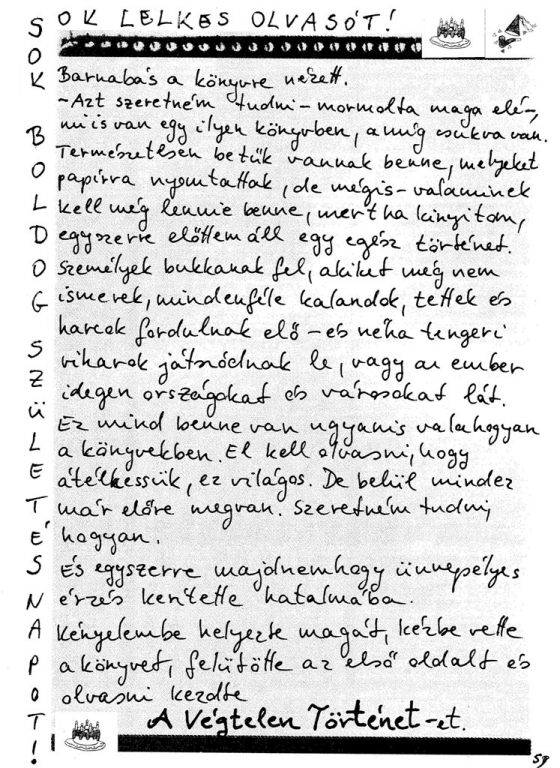 SOK LELKES OLVASÓT!
SOK BOLDOG SZÜLETÉSNAPOT!
Barnabás a könyvre nézett.
- Azt szeretném tudni - mormolta maga elé -,
mi is van egy ilyen könyvben, amíg csukva van.
Természetesen betűk vannak benne, melyeket
papírra nyomtattak, de mégis - valaminek
kell még lennie benne, mert ha kinyitom,
egyszerre előttem áll egy egész történet.
Személyek bukkanak fel, akiket még nem
ismerek, mindenféle kalandok, tettek és
harcok fordulnak elő - és néha tengeri
viharok játszódnak le, vagy az ember
idegen országokat és városokat lát.
Ez mind benne van ugyanis valahogyan
a könyvekben. El kell olvasni, hogy
átélhessük, ez világos. De belül mindez
már előre megvan. Szeretném tudni,
hogyan.
És egyszerre majdnemhogy ünnepélyes
érzés kerítette hatalmába.
Kényelembe helyezte magát, kézbe vette
a könyvet, felütötte az első oldalt és
olvasni kezdte
A Végtelen Történet-et.
59